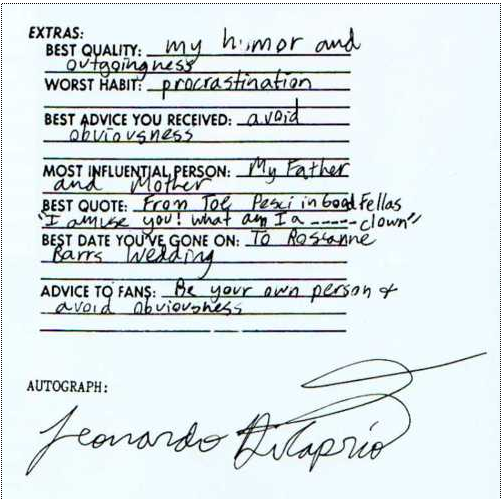 EXTRAS:
BEST QUALITY: my humor and
outgoingness
WORST HABIT: procrastination
BEST ADVICE YOU RECEIVED: avoid
obviousness
MOST INFLUENTIAL PERSON: My Father
and Mother
BEST QUOTE: From Joe Pesci in Good Fellas
"I amuse you! what am I a ----- clown"
BEST DATE YOU'VE GONE ON: To Rossanne
Barrs Wedding
ADVICE TO FANS: Be your own person &
avoid obviousness
AUTOGRAPH:
Leonardo DiCaprio